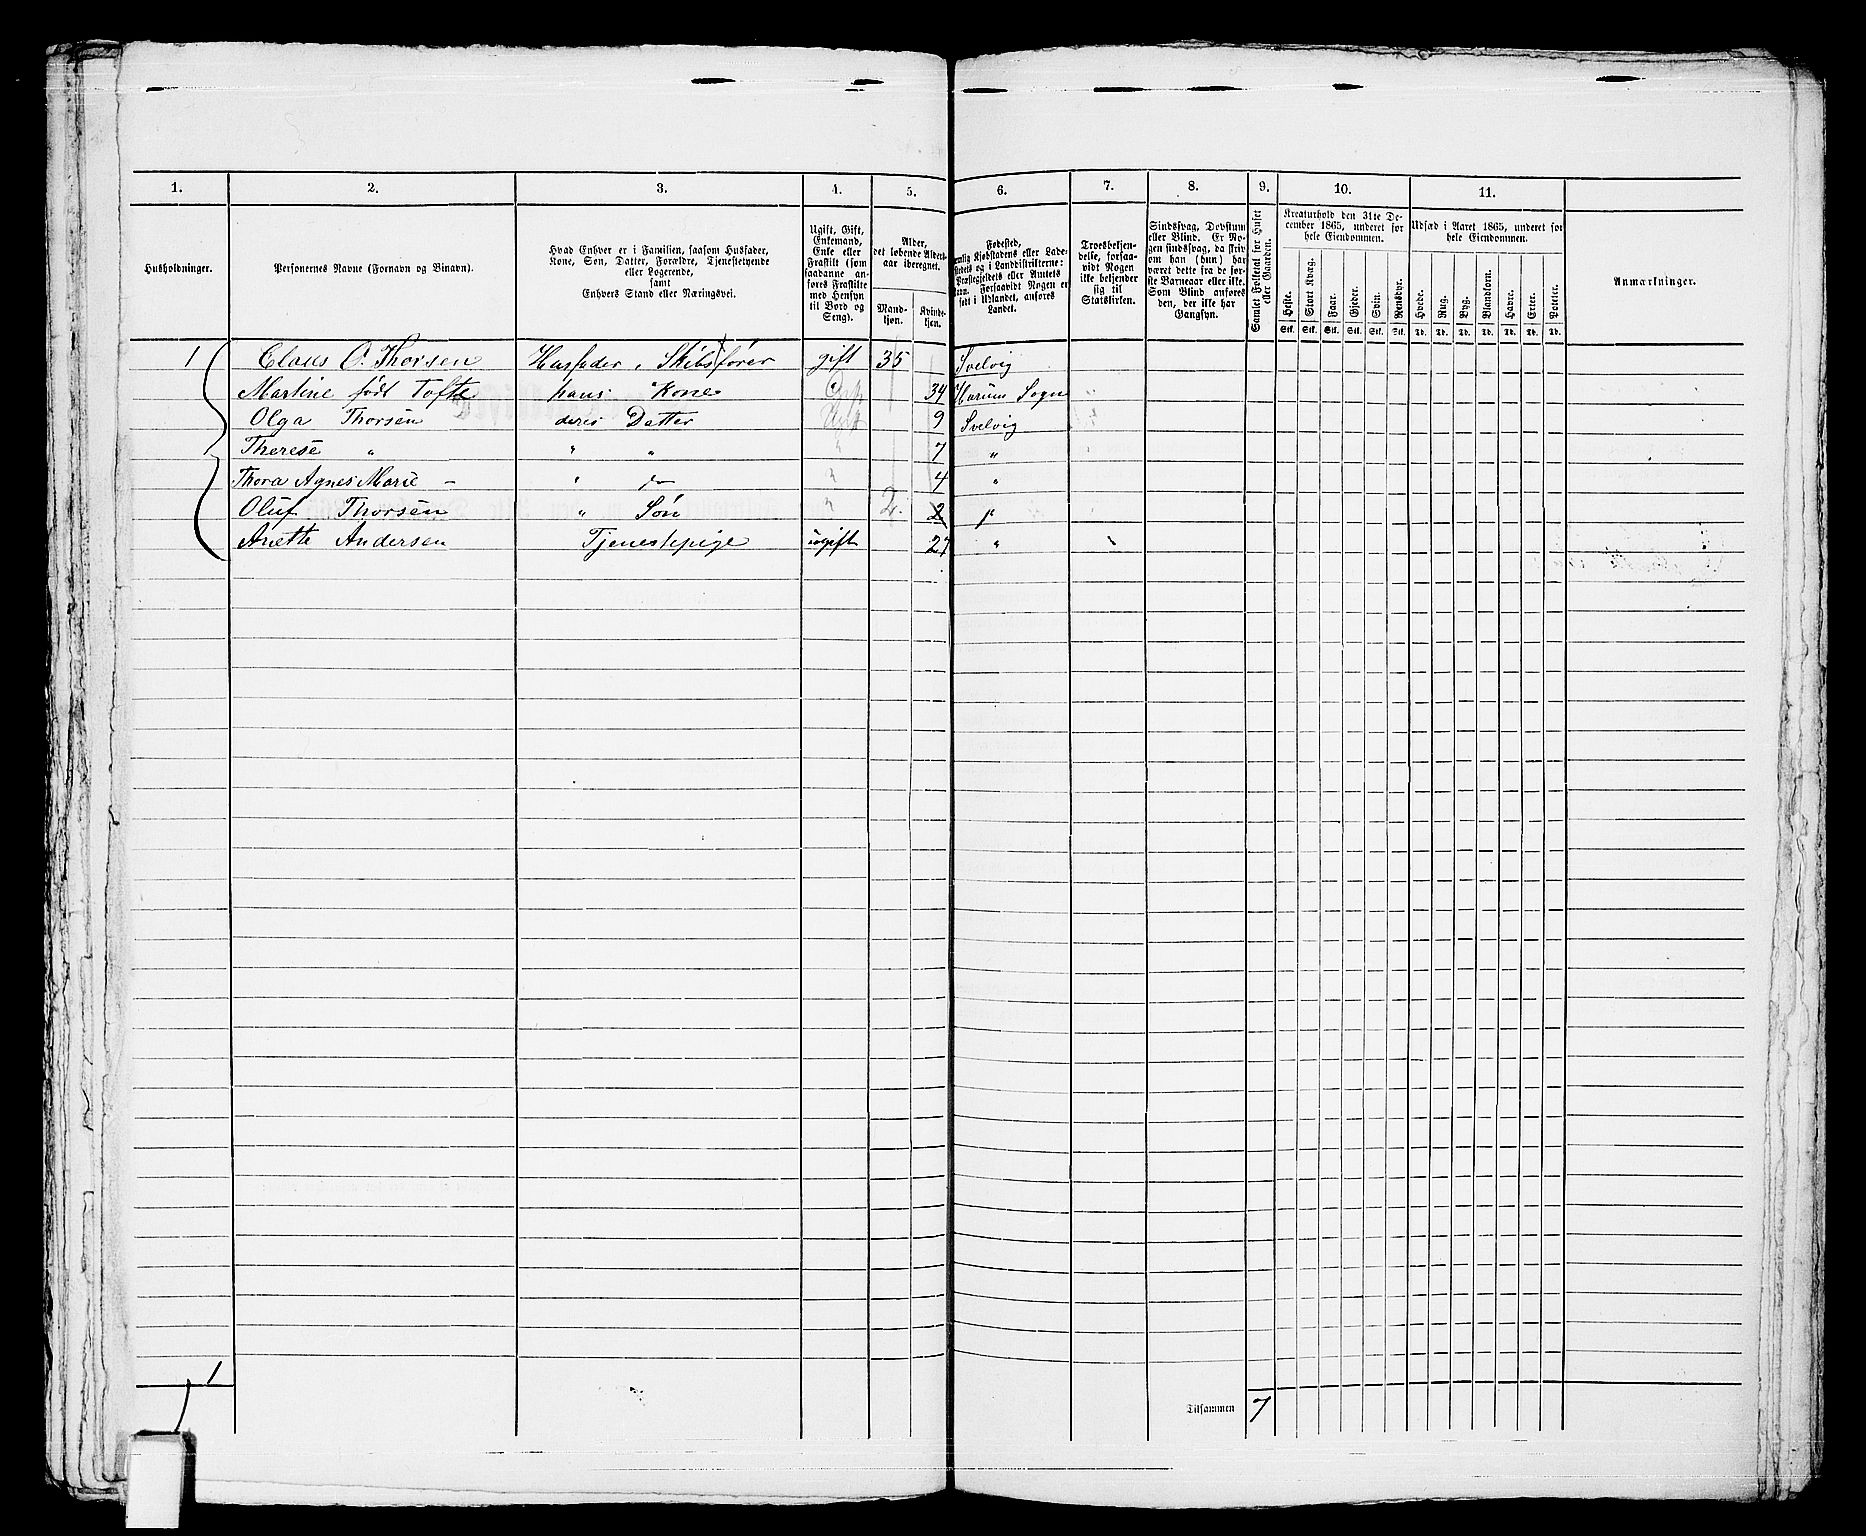 1. 2. 3. 4. 5. 6. 7. 8. 9. 10. 11.
Husholdninger.
Personernes Navne (Fornavn og Binavn).
Hvad Enhver er i Familien, saasom Husfader,
Kone, Søn, Datter, Forældre, Tjenestetyende
eller Logerende,
samt
Enhvers Stand eller Næringsvei.
Ugift, Gift,
Enkemand,
Enke eller
Fraskilt (som
saadanne an-
føres Fraskilte
med Hensyn
til Bord og
Seng).
Alder,
det løbende Alders-
aar iberegnet.
Mand-
kjøn.
Kvinde-
kjøn.
Fødested,
nemlig Kjøbstadens eller Lade-
stedets og i Landdistrikterne:
Præstegjeldets eller Amtets
Navn. Forsaavidt Nogen er
født i Udlandet, anføres
Landet.
Troesbekjen-
delse, forsaa-
vidt Nogen
ikke bekjender
sig til
Statskirken.
Sindssvag, Døvstum
eller Blind. Er No-
gen sindssvag, da skriv
om han (hun) har
været dette fra de før-
ste Barneaar eller ikke.
Som Blind anføres
den, der ikke har
Gangsyn.
Samlet Folketal for Huset
eller Gaarden.
Kreaturhold den 31te De-
cember 1865, underet for
hele Eiendommen.
Heste. Stort Kvæg. Faar. Gjeder. Svin. Rensdyr.
Stk. Stk. Stk. Stk. Stk. Stk.
Udsæd i Aaret 1865, underet for
hele Eiendommen.
Hvede. Rug. Byg. Blandkorn. Havre. Erter. Poteter.
Td. Td. Td. Td. Td. Td. Td.
Anmærkninger.
1 Claus O. Thorsen Husfader, Skibsfører gift 35 Svelvig
Martine født Tofte hans Kone Gift 34 Hurum Sogn
Olga Thorsen deres Datter Ugift 9 Svelvig
Therese " " " " 7 "
Thora Agnes Marie - " " 4 "
Oluf Thorsen " Søn " 2 2
Anette Andersen Tjenestepige ugift 27 "
1
Tilsammen 7